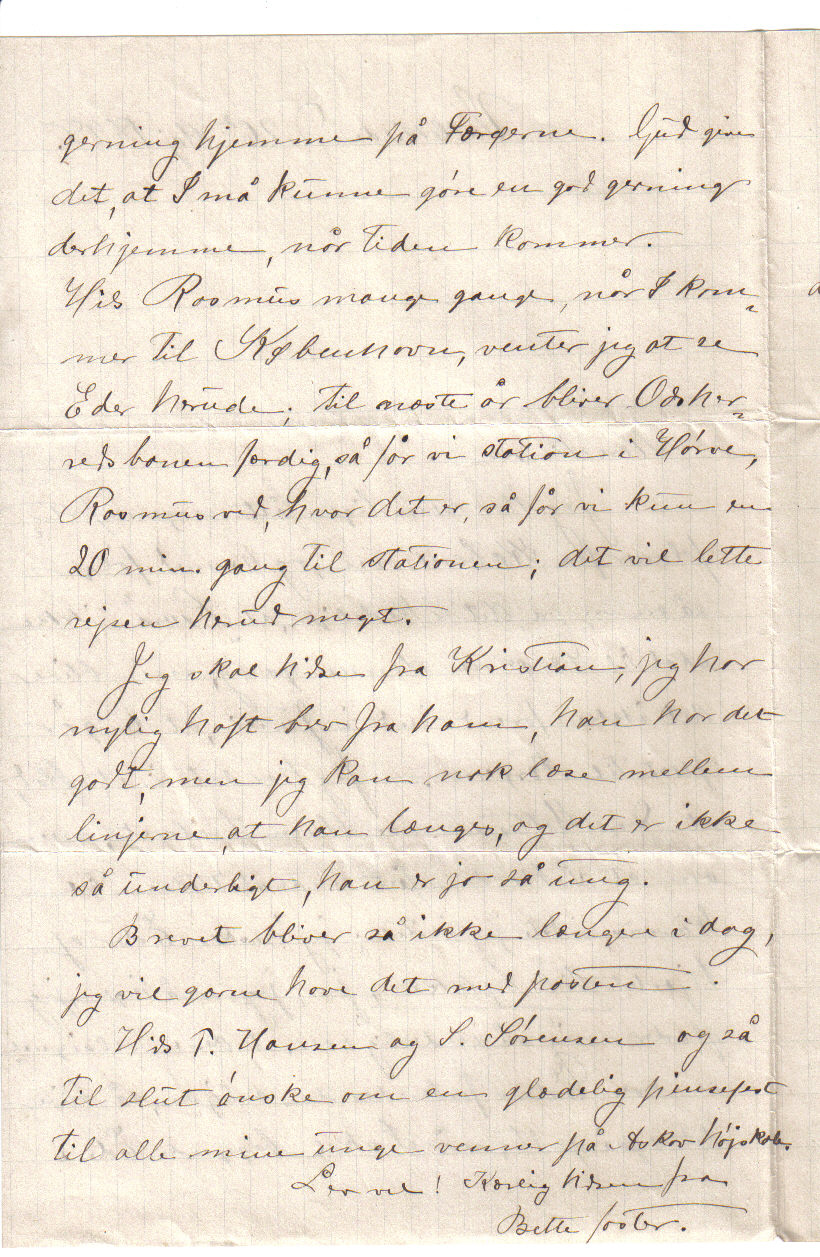 gerning hjemme på Færøerne. Gud give
det, at I må kunne göre en god gerning
derhjemme, når tiden kommer.
Hils Rasmus mange gange, når I kom=
mer til København, venter jeg at se
Eder herude; til næste år bliver Odsher=
redsbanen færdig, så får vi station i Hörve,
Rasmus ved, hvor det er, så får vi kun en
20 min. gang til stationen; det vil lette
rejsen herud meget.
Jeg skal hilse fra Kristian, jeg har
nylig haft brev fra ham, han har det
godt, men jeg kan nok læse mellem
linjerne, at han længes, og det er ikke
så underligt, han er jo så ung.
Brevet bliver så ikke længere i dag,
jeg vil gærne have det med posten.
Hils T. Hansen og S. Sörensen og så
til slut önske om en glædelig pinsefest
til alle mine unge venner på Askov höjskole.
Lev vel! Kærlig hilsen fra
Bette söster.